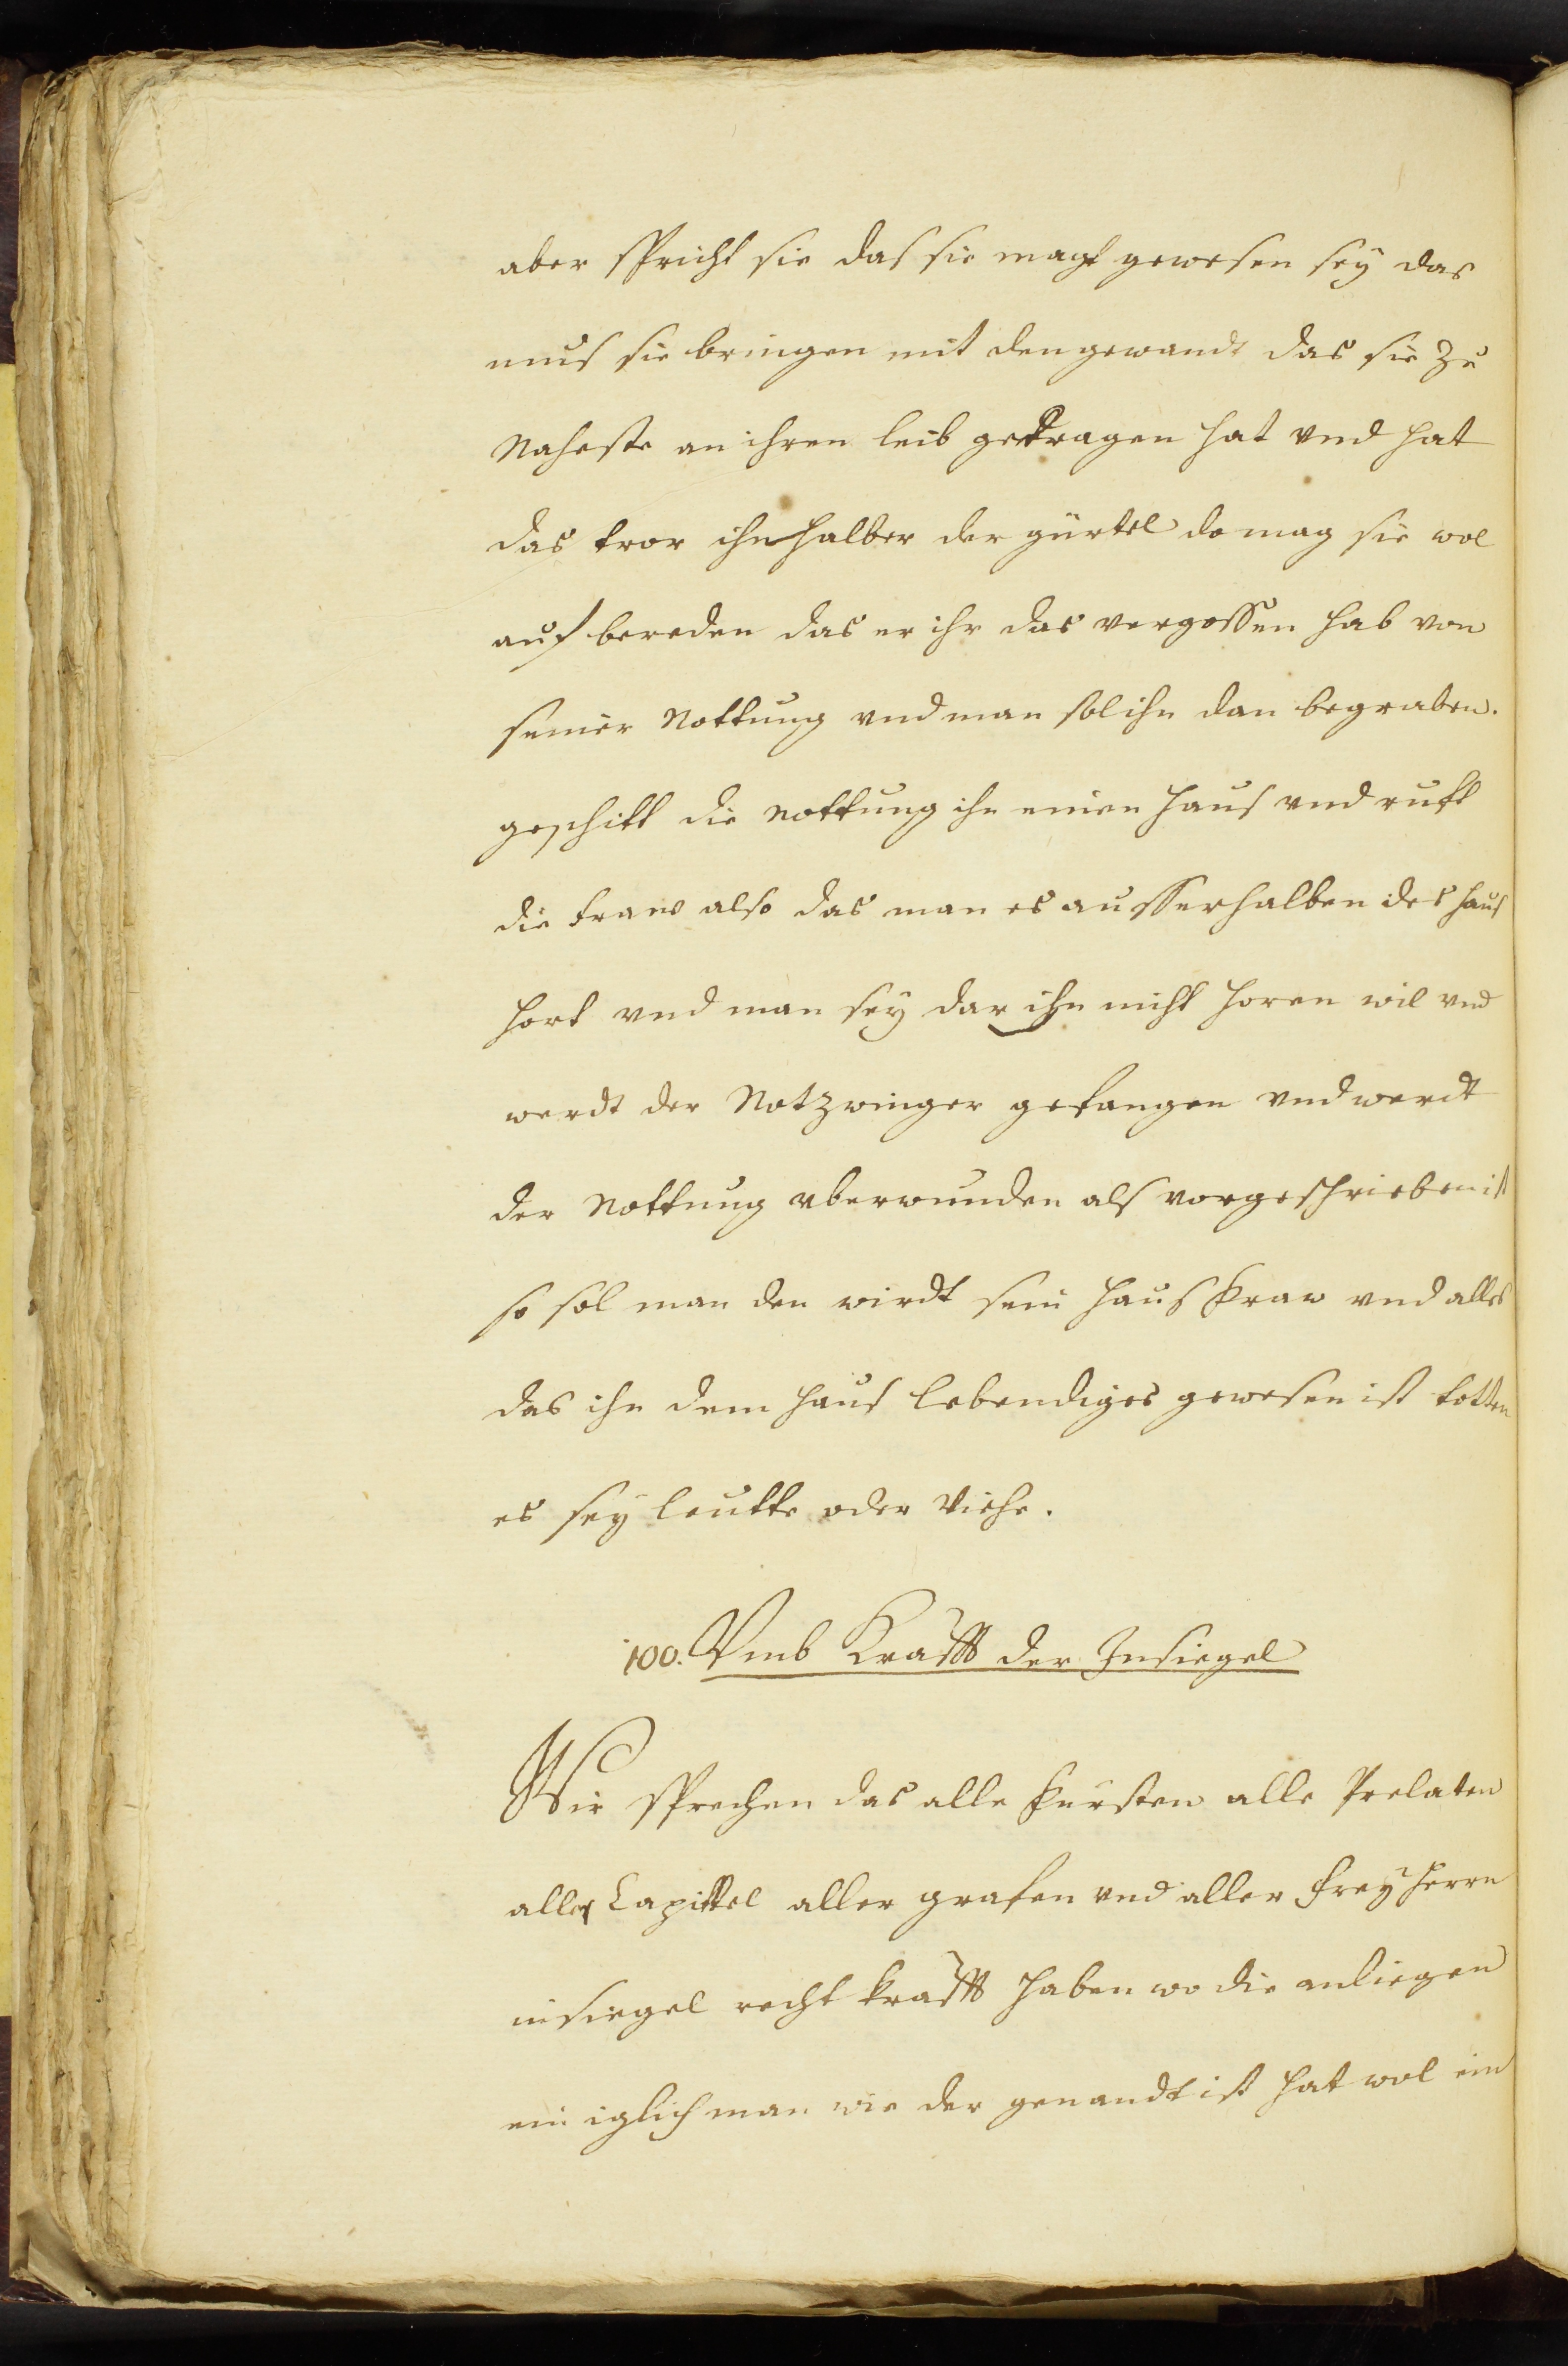 aber spricht sie das sie magt gewesen sey das
mus sie bringen mit den gewandt das sie zu
Naheste an ihren leib getragen hat vnd hat
das tror ihnhalber der gürtel do mag sie wol
auf bereden das er ihr das vergossen hab von
seiner Nottung vnd man sol ihn dan begraben.
geschitt die nottung ihn einen Haus vnd ruft
die fraw also das man es ausserhalben des haus
hort vnd man sey dar ihn nicht horen wil vnd
werdt der Notzwinger gefangen vnd werdt
der Nottung vberwunden als vorgeschrieben ist
so sol man den wirdt sein Hausfraw vnd alles
das ihn dem Haus lebendiges gewesen ist totten
es sey leutte oder Viehe.
100. Vmb Krafft der Insiegel
Wir sprechen das alle Fursten alle Prelaten
alle Capittel aller grafen vnd aller Freyherrn
insiegel recht krafft haben wo die anliegen
ein iglich man wie der genandt ist hat wol ein